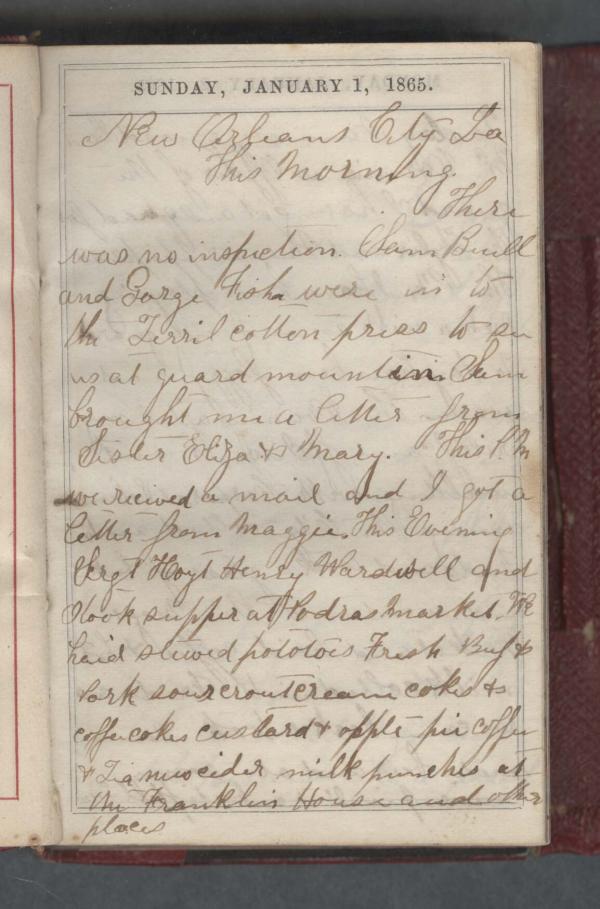 SUNDAY, JANUARY 1, 1865.
New Orleans City La
This Morning.
There
was no inspection. Sam Buell
and Gorge Fish were in to
the Terril cotton press to see
us at guard mountin Sam
brought me a letter from
Sister Eliza & Mary. This P.M
we recieved a mail and I got a
letter from Maggie. This Evening
Sergt Hoyt Henry Wardwell and
I took supper at Podras Market. We
haid stewed pototoes Fresh Beef &
Pork sourcrout cream cokes &
coffee cokes custard & opple pie coffee
& Tea new cider milk punches at
the Franklin House and other
places